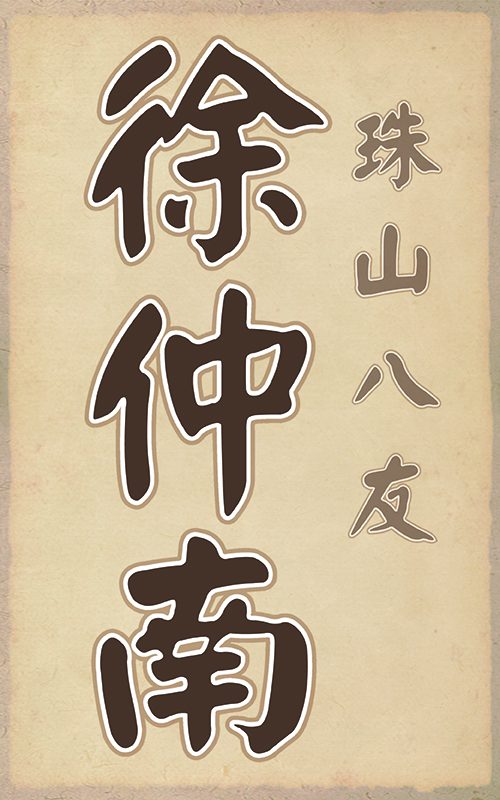 珠山八友
徐仲南